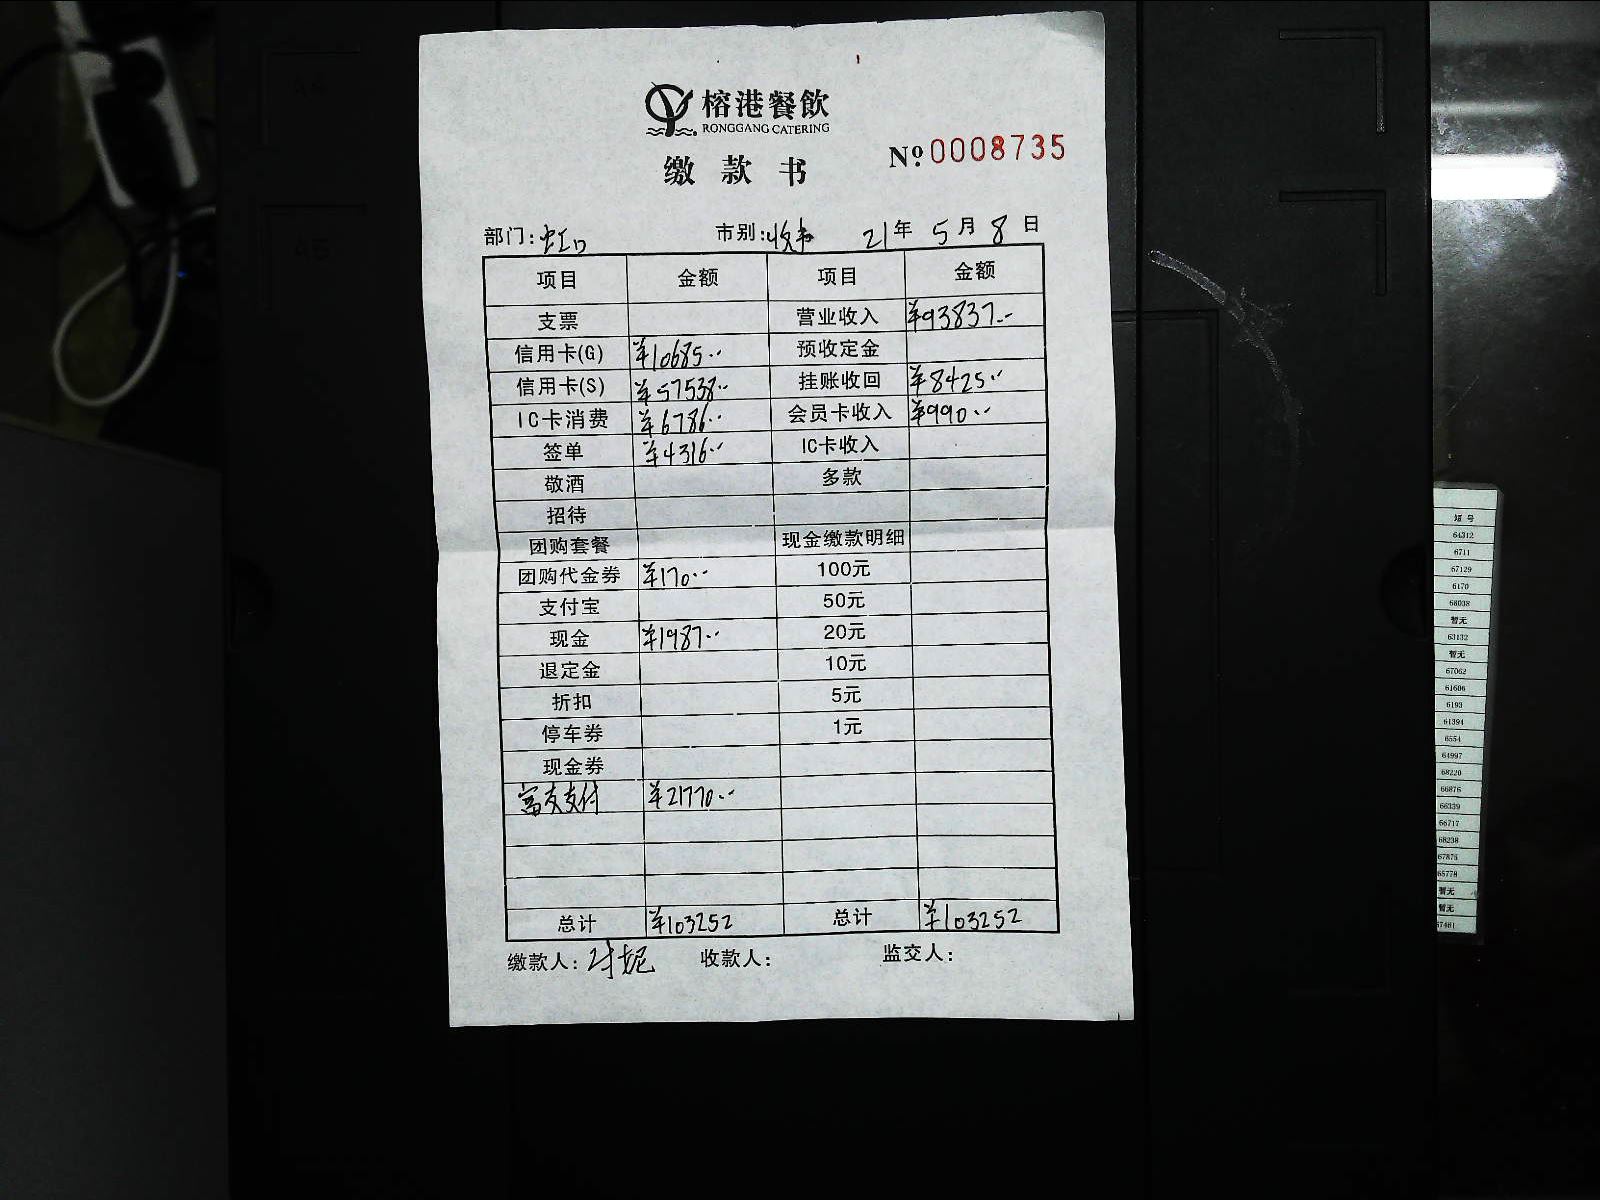 榕港餐飲
RONGGANG CATERING
缴款书 №0008735
部门:虹口 市别:收市 21年5月8日
项目 金额 项目 金额
支票 营业收入 ¥93837.--
信用卡(G) ¥10685.-- 预收定金
信用卡(S) ¥57538.-- 挂账收回 ¥8425.--
IC卡消费 ¥6786.-- 会员卡收入 ¥990.--
签单 ¥4316.-- IC卡收入
敬酒 多款
招待
团购套餐 现金缴款明细
团购代金券 ¥170.-- 100元
支付宝 50元
现金 ¥1987.-- 20元
退定金 10元
折扣 5元
停车券 1元
现金券
富友支付 ¥21770.--
总计 ¥103252 总计 ¥103252
缴款人: 收款人: 监交人:
短号
64312
6711
67129
6170
68038
暂无
63132
暂无
67062
61606
6193
61394
6554
64997
68220
66876
66339
66717
68238
67875
65778
暂无
暂无
67481